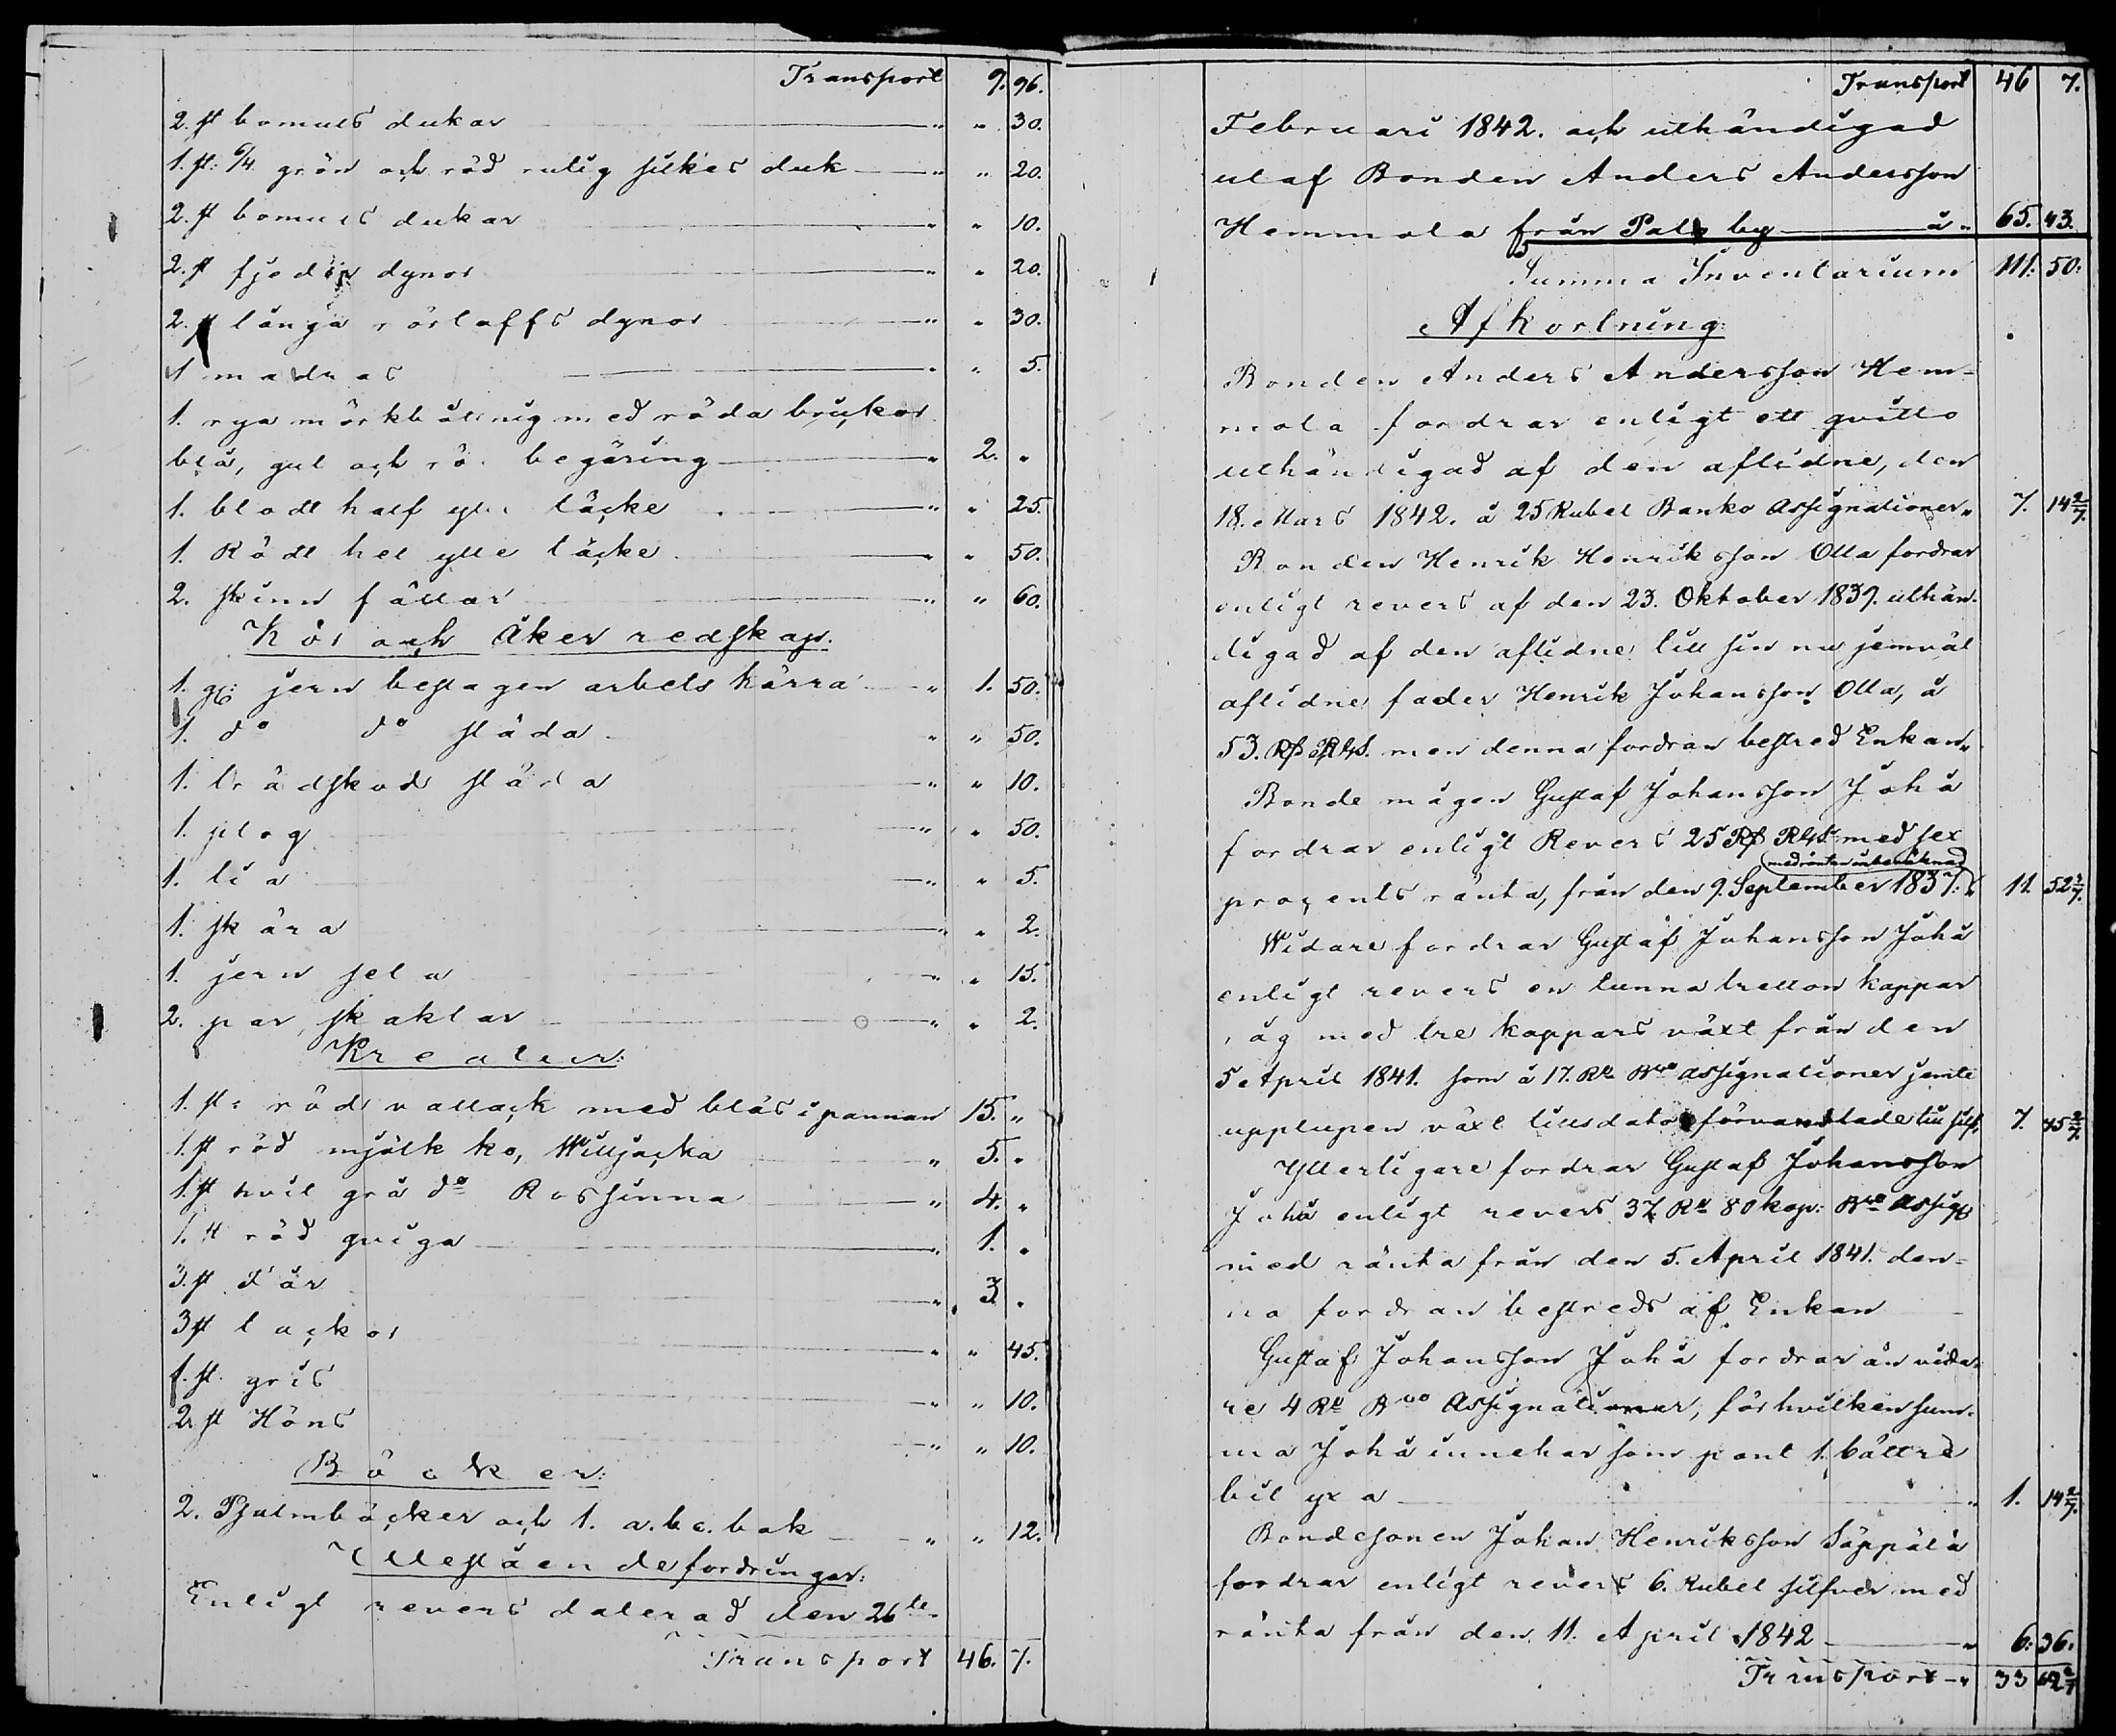 Transport 9. 96.
2. st bomuls dukar " " 30.
1. st: 6/4 grön och röd rutig silkes duk " " 20.
2. st bomuls dukar " " 10.
2. st fjeder dynor " " 20.
2. st långa rörtåffs dynor " " 30.
1 madras " " 5.
1. rya mörkbåttnig med röda brukor
blå, gul och rö. begäring " 2. "
1. blodt half ylle täcke " " 25.
1. Rödt hel ylle täcke " " 50.
2. skinn fällar " " 60.
Kör och Åker redskap.
1. gl: jern beslagen arbets kärra " 1. 50.
1. do do släda " " 50.
1. trädskod släda " " 10.
1. plog " " 50.
1. lia " " 5.
1. skära " " 2.
1. jern sela " " 15.
2. par skaklar " " 2.
Kreatur:
1. st: röd vallack med bläs i pannan 15. "
1. st röd mjölk ko, Willjacka " 5. "
1. st hvit grå do Rossinna " 4. "
1. st röd qviga " 1. "
3. st Får " 3. "
3 st tackor " " 45.
1. st. gris " " 10.
2. st Höns " " 10.
Böcker:
2. Psalmböcker och 1. a.b.c. bok " " 12.
Utestående fordringar:
Enligt revers daterad den 26te
Transport 46. 7.
Transport 46 7.
Februari 1842. och uthändigad
utaf Bonden Anders Andersson
Hemmola från Palo by å " 65. 43.
Summa Inventarium 111: 50:
Afkortning:
Bonden Anders Andersson Hem-
mola fordrar enligt ett qvitto
uthändigad af den aflidne, den
18. Mars 1842. å 25 Rubel Banko Assignationer " 7. 14 2/7.
Bonden Henrik Henriksson Olla fordrar
enligt revers af den 23. Oktober 1839. uthän-
digad af den aflidne till sin nu jemväl
aflidne fader Henrik Johansson Olla, å
53. Rß RgS. men denna fordran bestred Enkan "
Bonde mågen Gustaf Johansson Johå
fordrar enligt Revers 25 Rß RgS med sex
med räntan inberäknad
procents ränta, från den 9. September 1837. " 11. 52 2/7.
Widare fordrar Gustaf Johansson Johå
enligt revers en tunna tretton kappar
råg med tre kappars växt från den
5 April 1841. som å 17. Rl Bco assignationer jemte
upplupen växt tillsdato förvandlade till silf. 7. 45 2/7.
Ytterligare fordrar Gustaf Johansson
Johå enligt revers 37 Rl 80 kop: Bco Assign:
med ränta från den 5. April 1841. den-
na fordran bestreds af Enkan
Gustaf Johansson Johå fordrar än vida-
re 4 Rl Bco Assignationer, för hvilken sum-
ma Johå innehar som pant 1. bättre
bil yxa " 1. 14 2/7.
Bondesonen Johan Henriksson Säppälä
fordrar enligt revers 6. Rubel silfver med
ränta från den 11. April 1842 " 6. 36.
Transport " 33 62 6/7